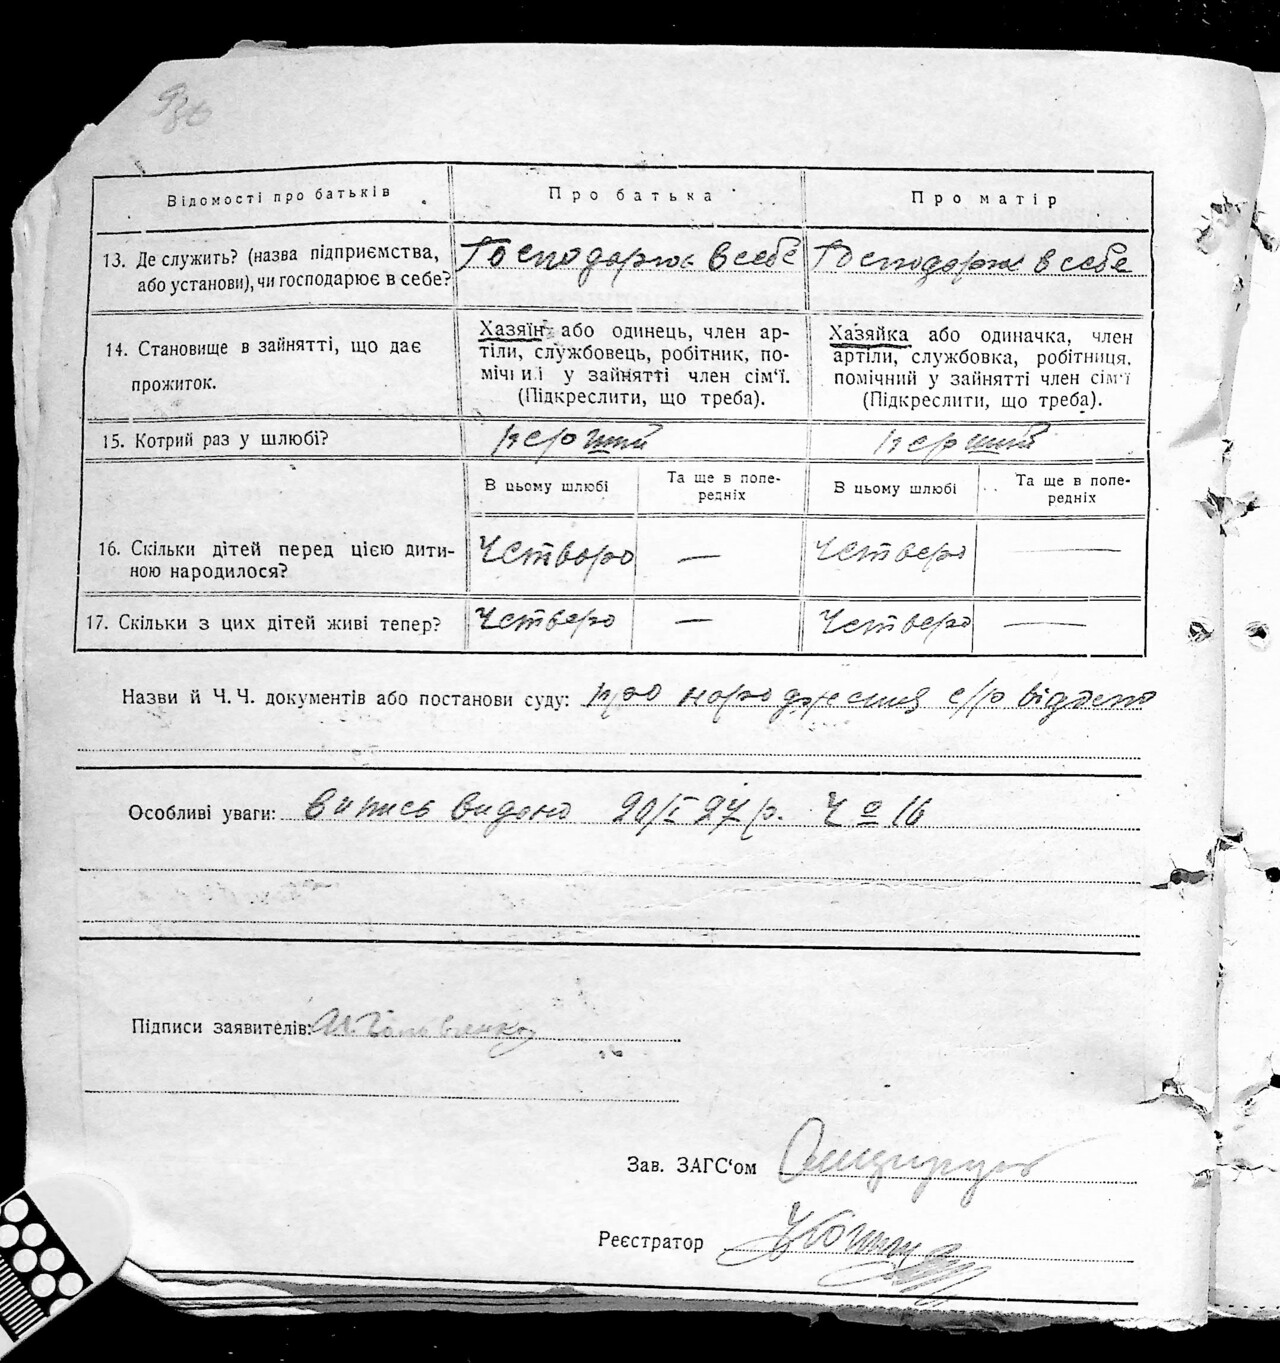 936
Відомості про батьків Про батька Про матір
13. Де служить? (назва підприємства, або установи), чи господарює в себе? Господарює в себе Господарює в себе
14. Становище в зайнятті, що дає прожиток.
Хазяїн або одинець, член ар-
тіли, службовець, робітник, по-
мічний у зайнятті член сім'ї.
(Підкреслити, що треба).
Хазяйка або одиначка, член
артіли, службовка, робітниця,
помічний у зайнятті член сім'ї
(Підкреслити, що треба).
15. Котрий раз у шлюбі? перший перший
В цьому шлюбі Та ще в попе-
редніх В цьому шлюбі Та ще в попе-
редніх
16. Скільки дітей перед цією дити-
ною народилося? Четверо — Четверо —
17. Скільки з цих дітей живі тепер? Четверо — Четверо —
Назви й Ч. Ч. документів або постанови суду: про народження с/р
Особливі уваги: Випись видано 20/I 27 р. Ч 16
Підписи заявителів:
Зав. ЗАГС'ом
Реєстратор